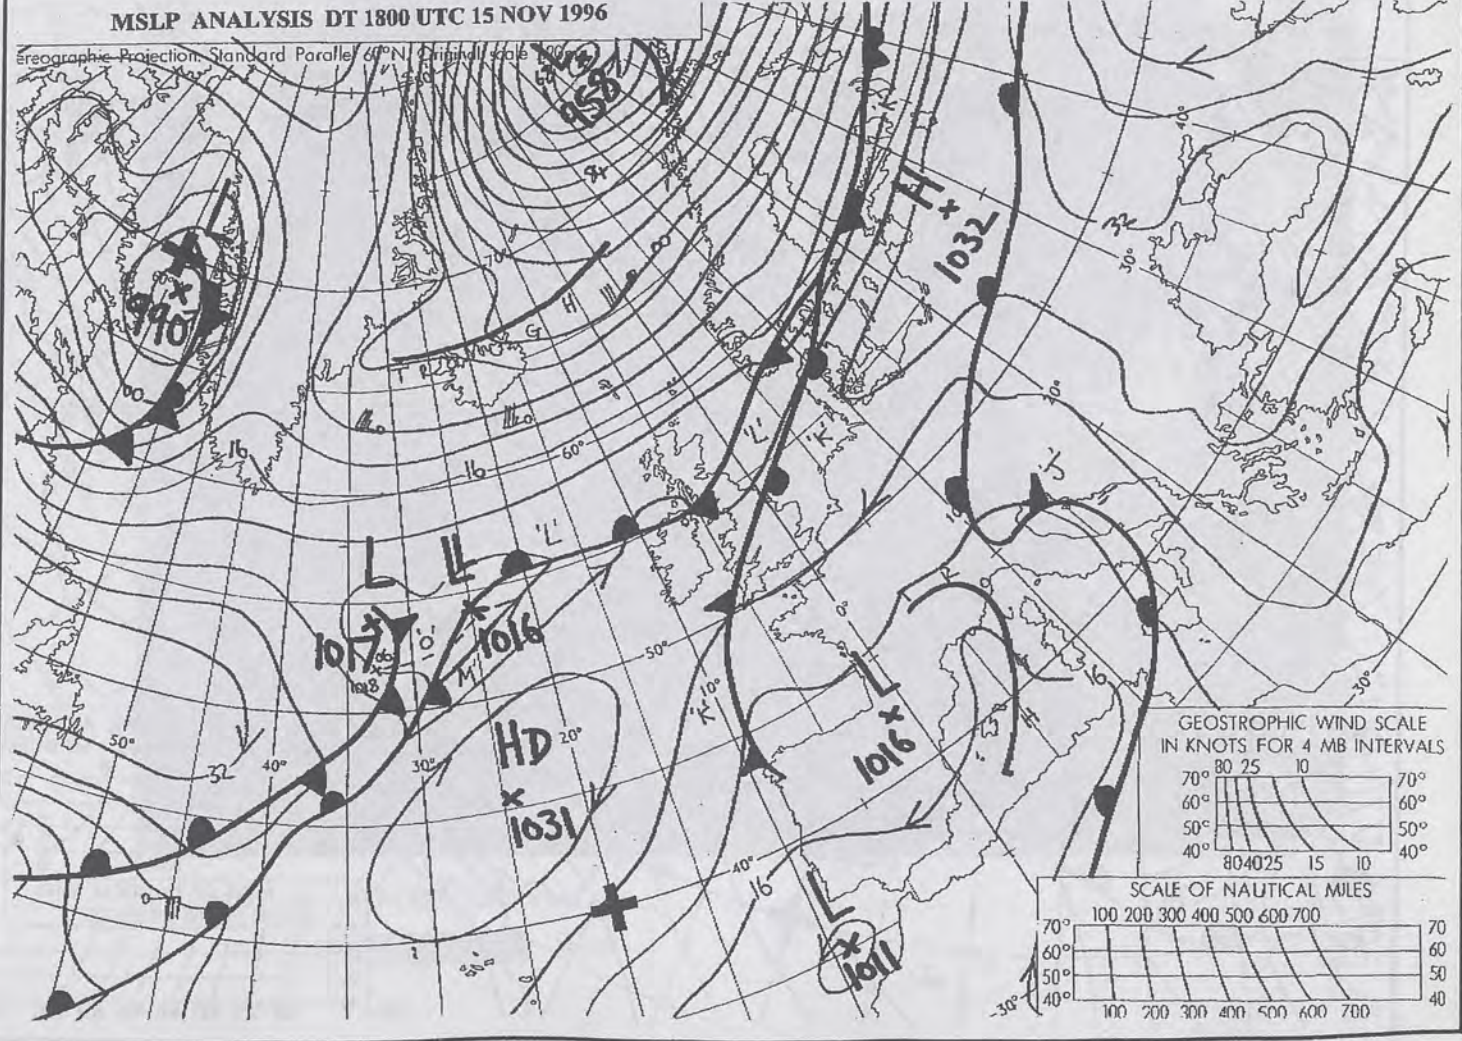 MSLP ANALYSIS DT 1800 UTC 15 NOV 1996
ereographic Projection, Standard Parallel 60°N, Original scale
958
L
990
H
1032
32
40°
30°
20°
70°
G
H
T
00
16
16
60°
'L'
'K'
'J'
'L'
L
L
1017
1018
'O'
1016
'M'
50°
0°
K
10°
HD
1031
20°
30°
40°
50°
32
0
L
1016
H
16
30°
40°
16
L
1011
-30°
GEOSTROPHIC WIND SCALE
IN KNOTS FOR 4 MB INTERVALS
80 25 10
70° 70°
60° 60°
50° 50°
40° 40°
80 40 25 15 10
SCALE OF NAUTICAL MILES
100 200 300 400 500 600 700
70° 70
60° 60
50° 50
40° 40
100 200 300 400 500 600 700